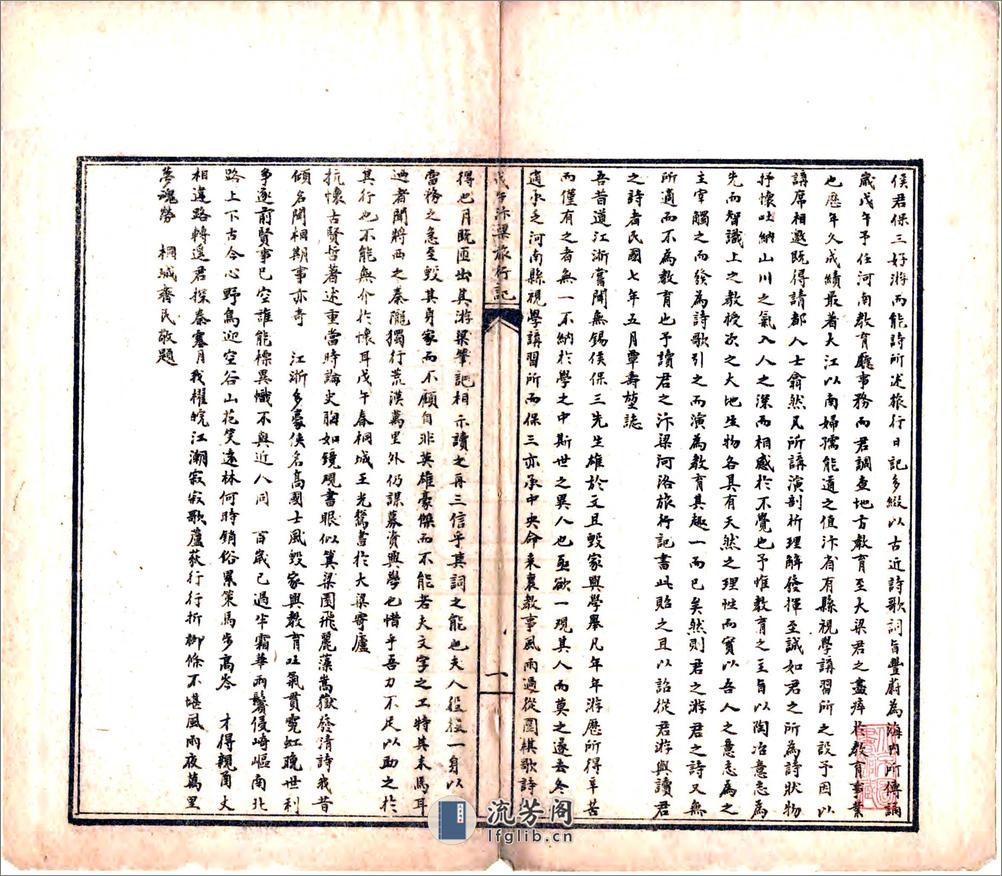 侯君保三好游而能詩所述旅行日記多綴以古近詩歌詞旨豐蔚為海內所傳誦
歲戊午予任河南教育廳事務而君調查地方教育至大梁君之盡瘁於教育事業
也歷年久成績最著大江以南婦孺能道之值汴省有縣視學講習所之設予因以
講席相邀既得請都人士翕然凡所講演剖析理解發揮至誠如君之所為詩狀物
抒懷吐納山川之氣入人之深而相感於不覺也予惟教育之主旨以陶冶意志為
先而智識上之教授次之大地生物各具有天然之理性而實以吾人之意志為之
主宰觸之而發為詩歌引之而演為教育其趣一而已矣然則君之游君之詩又無
所適而不為教育也予讀君之汴梁河洛旅行記書此貽之且以諗從君游與讀君
之詩者民國七年五月覃壽堃誌
吾昔道江浙嘗聞無錫侯保三先生雄於文且毀家興學舉凡年年游歷所得辛苦
而僅有之者無一不納於學之中斯世之異人也亟欲一現其人而莫之遂去冬
適承乏河南縣視學講習所而保三亦承中央命來襄教事風雨過從圍棋歌詩
戊午汴梁旅行記
一
得也月既匝出其游梁筆記相示讀之再三信乎其詞之能也夫人役役一身以
當務之急至毀其身家而不顧自非英雄豪傑而不能若夫文字之工特其末焉耳
迺者聞將西之秦隴獨行荒漠萬里外仍謀募資興學也惜乎吾力不足以助之於
其行也不能無介於懷耳戊午春桐城王光鸞書於大梁寄廬
抗懷古賢哲著述重當時論史胸如鏡現書眼似箕梁園飛麗藻嵩嶽發清詩我昔
傾名聞相期事亦奇　江浙多豪俠名高國士風毀家興教育吐氣貫霓虹晚世利
爭逐前賢事已空誰能標異幟不與近人同　百歲已過半霜華兩鬢侵崎嶇南北
路上下古今心野鳥迎空谷山花笑遠林何時銷俗累策馬步高岑　才得親函丈
相違路轉遥君探秦塞月我櫂皖江潮寂寂歌蘆荻行行折柳條不堪風雨夜萬里
夢魂勞　桐城齊民敬題
流芳阁
lfglib.cn